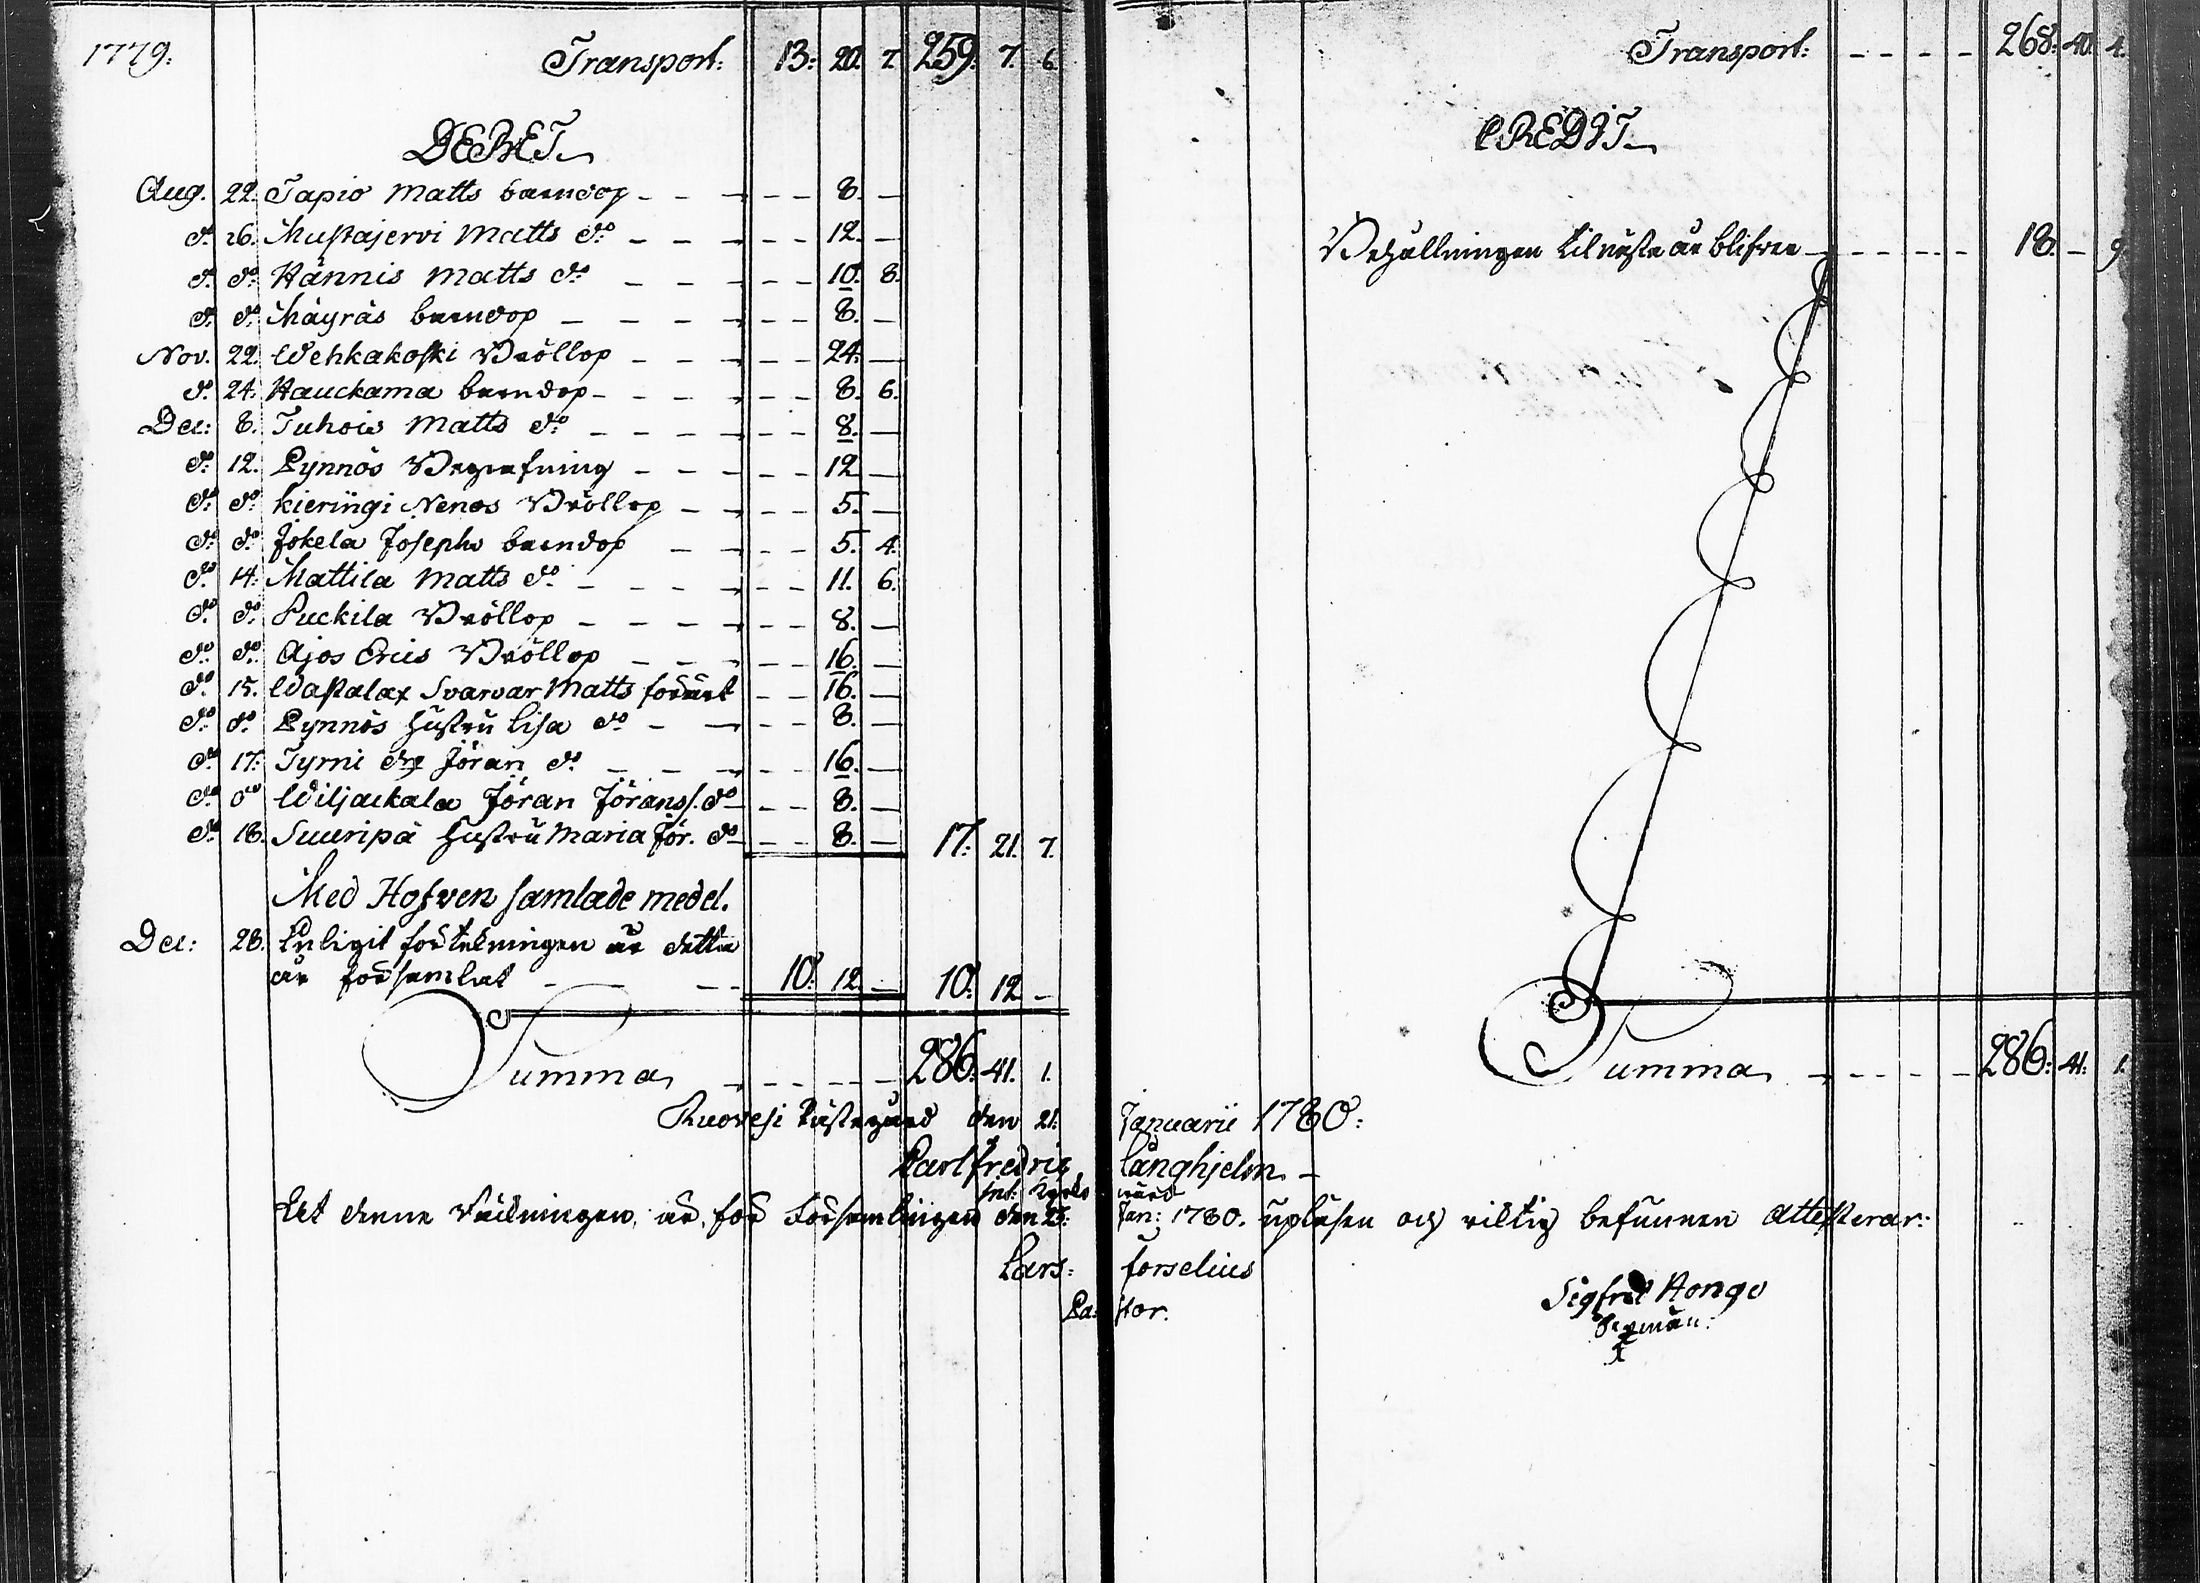 1779. Transport: 13: 20. 7. 259. 7. 6.
DEBET
Aug. 22. Tapio Matts barndop - - - - - 8. —
d:o 26. Mustajervi Matts d:o - - - - - 12. —
d:o d:o Hännis Matts d:o - - - - - 10. 8.
d:o d:o Mäyräs barndop - - - - - 8. —
Nov. 22. Wehkakoski Bröllop - - - - - 24. —
d:o 24. Hauckama barndop - - - - - 8. 6.
Dec: 8. Juhois Matts d:o - - - - - 8. —
d:o 12. Pynnös Begrafning - - - - - 12 —
d:o d:o Kieringi Nenos Bröllop - - - - 5. —
d:o d:o Jokela Josephs barndop - - - - 5. 4.
d:o 14. Mattila Matts d:o - - - - - 11. 6.
d:o d:o Puckila Bröllop - - - - - 8. —
d:o d:o Ajos Erics Bröllop - - - - - 16. —
d:o 15. Wastalax Svarvar Matts förärt - - 16. —
d:o d:o Pynnös Hustru Lisa d:o - - - - 8. —
d:o 17. Tyrni drg Jöran d:o - - - - - 16. —
d:o d:o Wiljackala Jöran Jöranss. d:o - - 8. —
d:o 18. Suuripä Hustru Maria Jör. d:o - - 8. — 17: 21. 7.
Med Hofven samlade medel.
Dec: 28. Enligit förtekningen är detta
år församlat - - - 10: 12 — 10: 12 —
Summa - - - - - 286: 41. 1.
Transport: - - - - 268: 40. 4.
CREDIT
Behållningen til nästa år blifver - - - - - 18. — 9
Summa - - - - - 286: 41: 1.
Ruovesi Prästegård den 21: Januarii 1780:
Carl Fredric Långhjelm
At denne Räkningen är för Församlingen den 23: Jan: 1780. upläsen och riktig befunnen attesterar:
Lars: Forselius
Pa: stor.
Sigfred Hongo
Sexman: